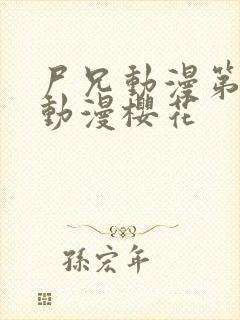 尸兄動漫第
動漫櫻花
孫宏年